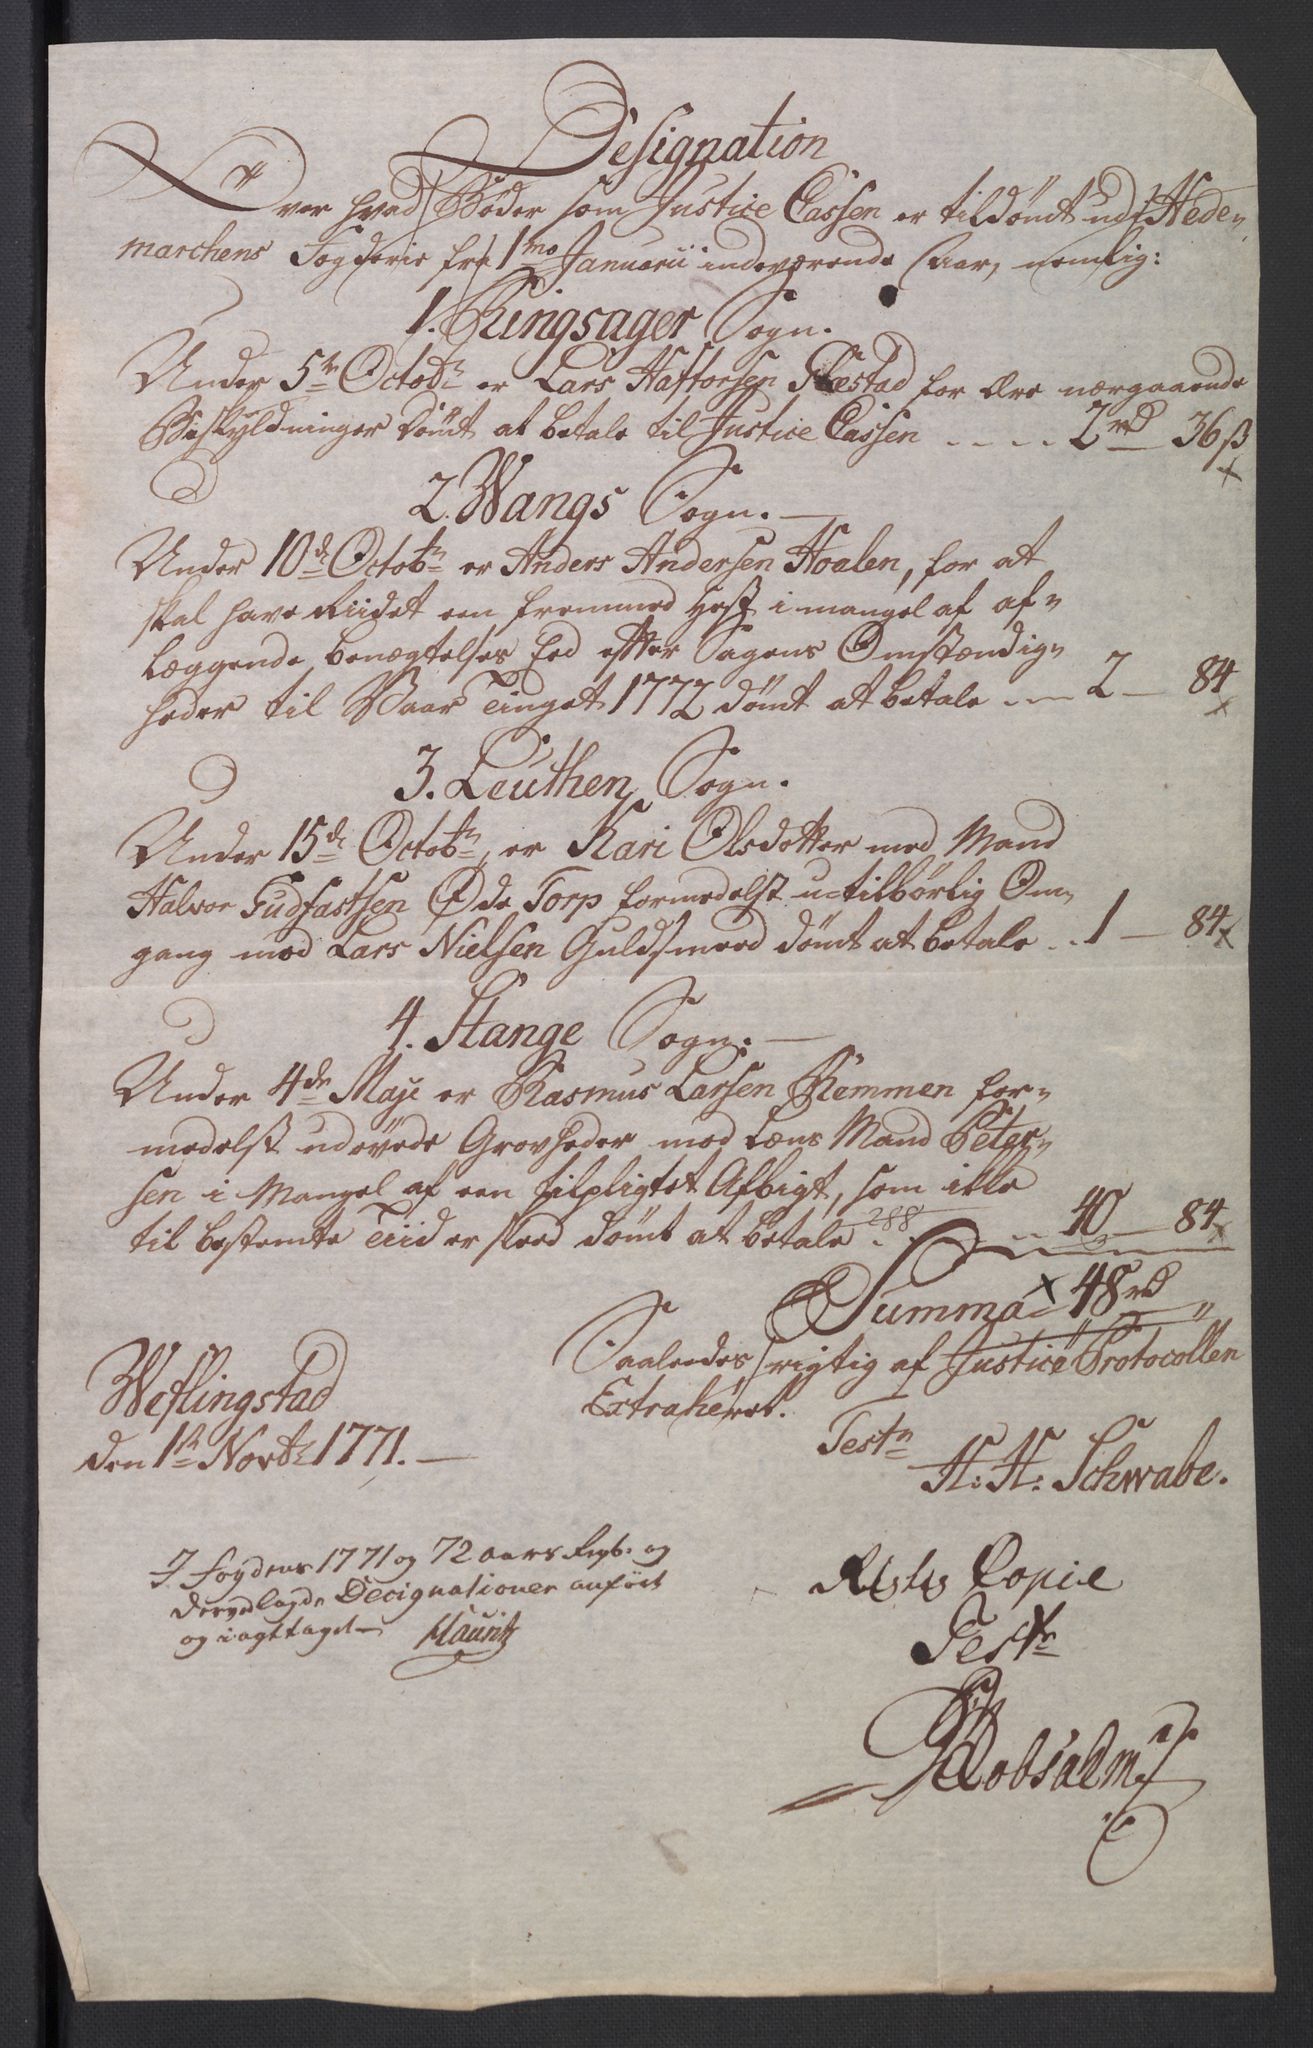 Designation
Over hvad Bøder som Justice Cassen er tildømt udj Hede„
marchens Fogderie fra 1mo Januarii indeværende Aar, nemlig:
1. Ringsager Sogn.
Under 5te Octobr er Lars Haftorsen Flestad for Ære nærgaaende
Beskyldninger dömt at betale til Justice Cassen .... 2rd 36ß
2. Wangs Sogn.
Under 10de Octobr er Anders Andersen Hoalen, for at
skal have Riidet een fremmed Hest i mangel af af„
læggende benægtelses Eed efter Sagens Omstændig„
heder til Vaar Tinget 1772 dömt at betale ... 2 — 84
3. Leuthen Sogn.
Under 15de Octobr, er Kari Olsdotter med Mand
Halvor Gudfastsen Øde Torp formedelst u-tilbörlig Om„
gang mod Lars Nielsen Guldsmeed dömt at betale .. 1 — 84
4. Stange Sogn.
Under 4de Maji er Rasmus Larsen Remmen for„
medelst udövede Grovheder mod Læns Mand Peter„
sen i Mangel af een tilpligtet Afbigt, som ikke
til bestemte Tiid er skeed dömt at betale .. 40 — 84
288
Summa 48rd „
Saaledes rigtig af Justice Protocollen
Extraheret.
Weflingstad
den 1te Novbr 1771.
Testr
H: H: Schwabe.
I fogdens 1771 og 72 aars Regb. og
derved lagde Decignationer anfört
og iagttaget
Mauritz
Rigtig Copie
Testr